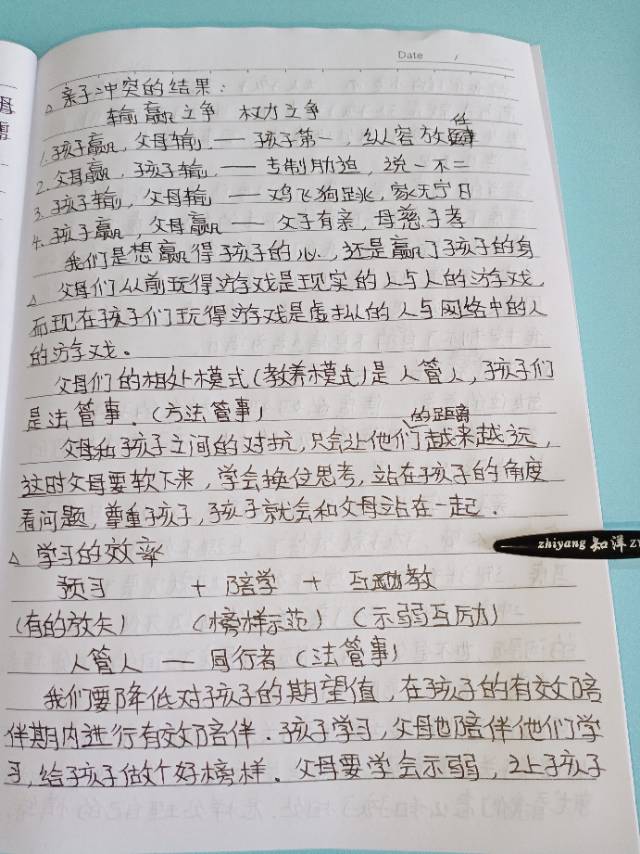 Date /
△ 亲子冲突的结果：
输赢之争 权力之争
1. 孩子赢，父母输 — 孩子第一，纵容放任
2. 父母赢，孩子输 — 专制胁迫，说一不二
3. 孩子输，父母输 — 鸡飞狗跳，家无宁日
4. 孩子赢，父母赢 — 父子有亲，母慈子孝
我们是想赢得孩子的心，还是赢了孩子的身
△ 父母们从前玩得游戏是现实的人与人的游戏，
而现在孩子们玩得游戏是虚拟的人与网络中的人
的游戏。
父母们的相处模式(教养模式)是人管人，孩子们
是法管事．(方法管事)
父母和孩子之间的对抗，只会让他们的距离越来越远，
这时父母要软下来，学会换位思考，站在孩子的角度
看问题，尊重孩子，孩子就会和父母站在一起．
zhiyang 知洋
△ 学习的效率
预习 + 陪学 + 互助教
(有的放矢) (榜样示范) (示弱互历力)
人管人 — 同行者 (法管事)
我们要降低对孩子的期望值，在孩子的有效陪
伴期内进行有效陪伴．孩子学习，父母也陪伴他们学
习，给孩子做个好榜样．父母要学会示弱，让孩子